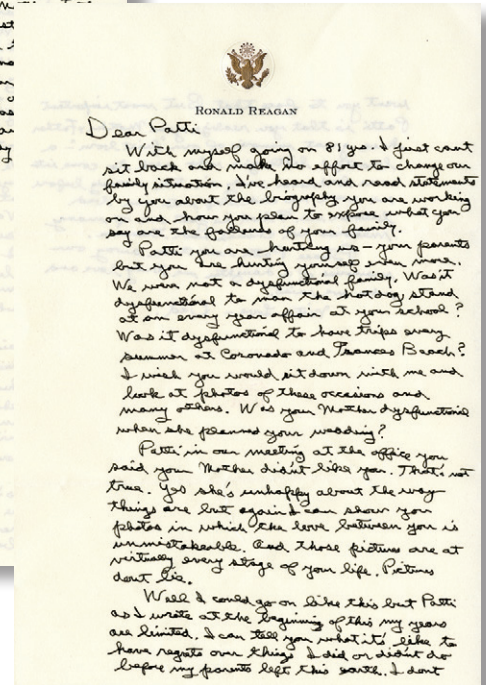 RONALD REAGAN
Dear Patti
With myself going on 81 yrs. I just can't
sit back and make no effort to change our
family situation. I've heard and read statements
by you about the biography you are working
on and how you plan to expose what you
say are the failures of your family.
Patti you are hurting us – your parents
but you are hurting yourself even more.
We were not a dysfunctional family. Was it
dysfunctional to man the hotdog stand
at an every year affair at your school?
Was it dysfunctional to have trips every
summer at Coronado and Beach?
I wish you would sit down with me and
look at photos of these occasions and
many others. Was your Mother dysfunctional
when she planned your wedding?
Patti in our meeting at the office you
said your Mother didn't like you. That's not
true. Yes she's unhappy about the way
things are but again I can show you
photos in which the love between you is
unmistakeable. And those pictures are at
virtually every stage of your life. Pictures
dont lie.
Well I could go on like this but Patti
as I wrote at the beginning of this my years
are limited. I can tell you what it's like to
have regrets over things I did or didn't do
before my parents left this earth. I dont